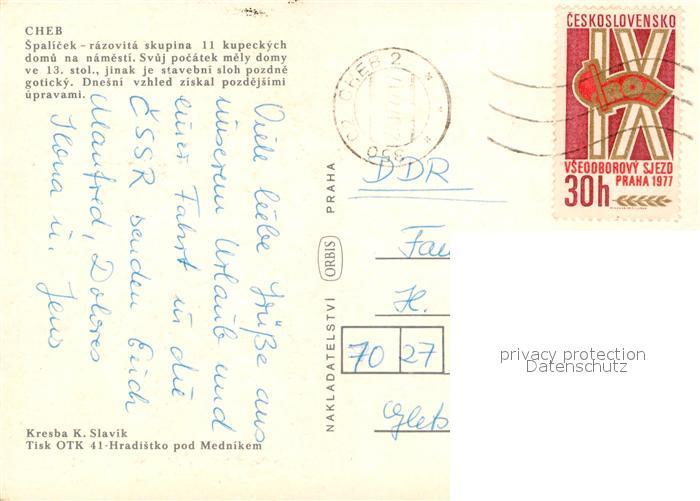 CHEB
Špalíček - rázovitá skupina 11 kupeckých
domů na náměstí. Svůj počátek měly domy
ve 13. stol., jinak je stavební sloh pozdně
gotický. Dnešní vzhled získal pozdějšími
úpravami.
Viele liebe Grüße aus
unserem Urlaub und
einer Fahrt in die
ČSSR senden Euch
Manfred, Dolores
Ilona u. Jens
Kresba K. Slavík
Tisk OTK 41-Hradištko pod Medníkem
NAKLADATELSTVÍ ORBIS PRAHA
CHEB 2
ČESKOSLOVENSKO
IX
ROH
VŠEODBOROVÝ SJEZD
PRAHA 1977
30h
DDR
Fam
H.
70 27
privacy protection
Datenschutz